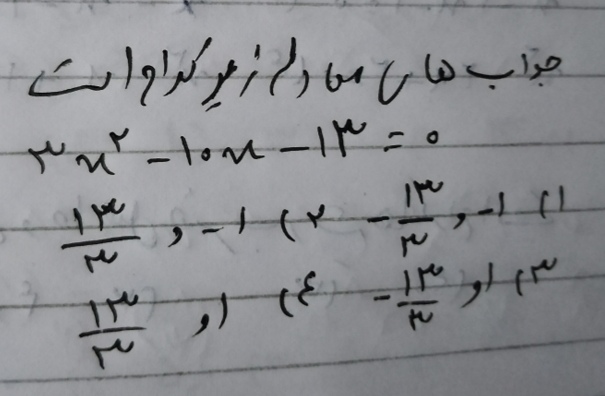 جواب های معادله زیر کدام است
۳x² - ۱۰x - ۱۳ = ۰
۱) ۱- و ۱۳/۳ - ۲) ۱- و ۱۳/۳
۳) ۱ و ۱۳/۳ - ۴) ۱ و ۱۳/۳